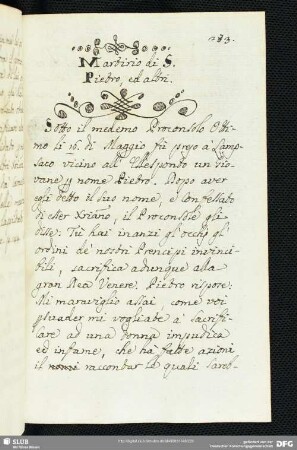 283.
Martirio di S.
Pietro, ed altri.
Sotto il medemo Proconsolo Otti-
mo li 15. di Maggio fu preso a Lamp-
saco vicino all' Ellesponto un Gio-
vane p nome Pietro. Dopo aver
egli detto il suo nome, e Confessato
di esser Xriano, il Proconsole gli
disse: Tu hai inanzi gl'occhj gl'
ordini de' nostri Prencipi invinci-
bili, sacrifica adunque alla
gran Dea Venere. Pietro rispose:
Mi maraviglio assai, come voi
psuader mi vogliate a' sacrifi-
care ad una donna impudica
ed infame, che ha fatte azioni
il racontar le quali sareb-
SLUB
DFG